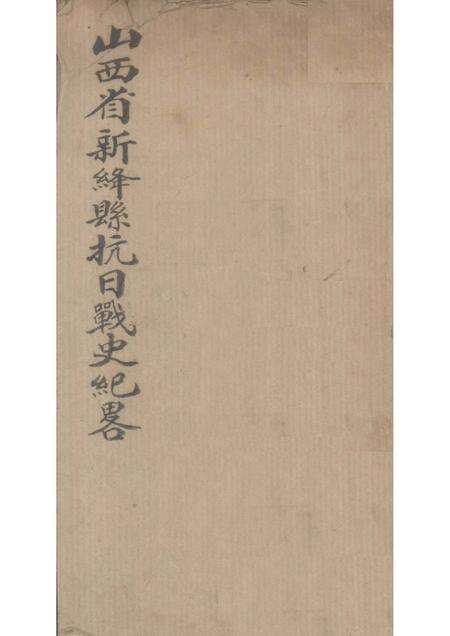 山西省新絳縣抗日戰史紀畧